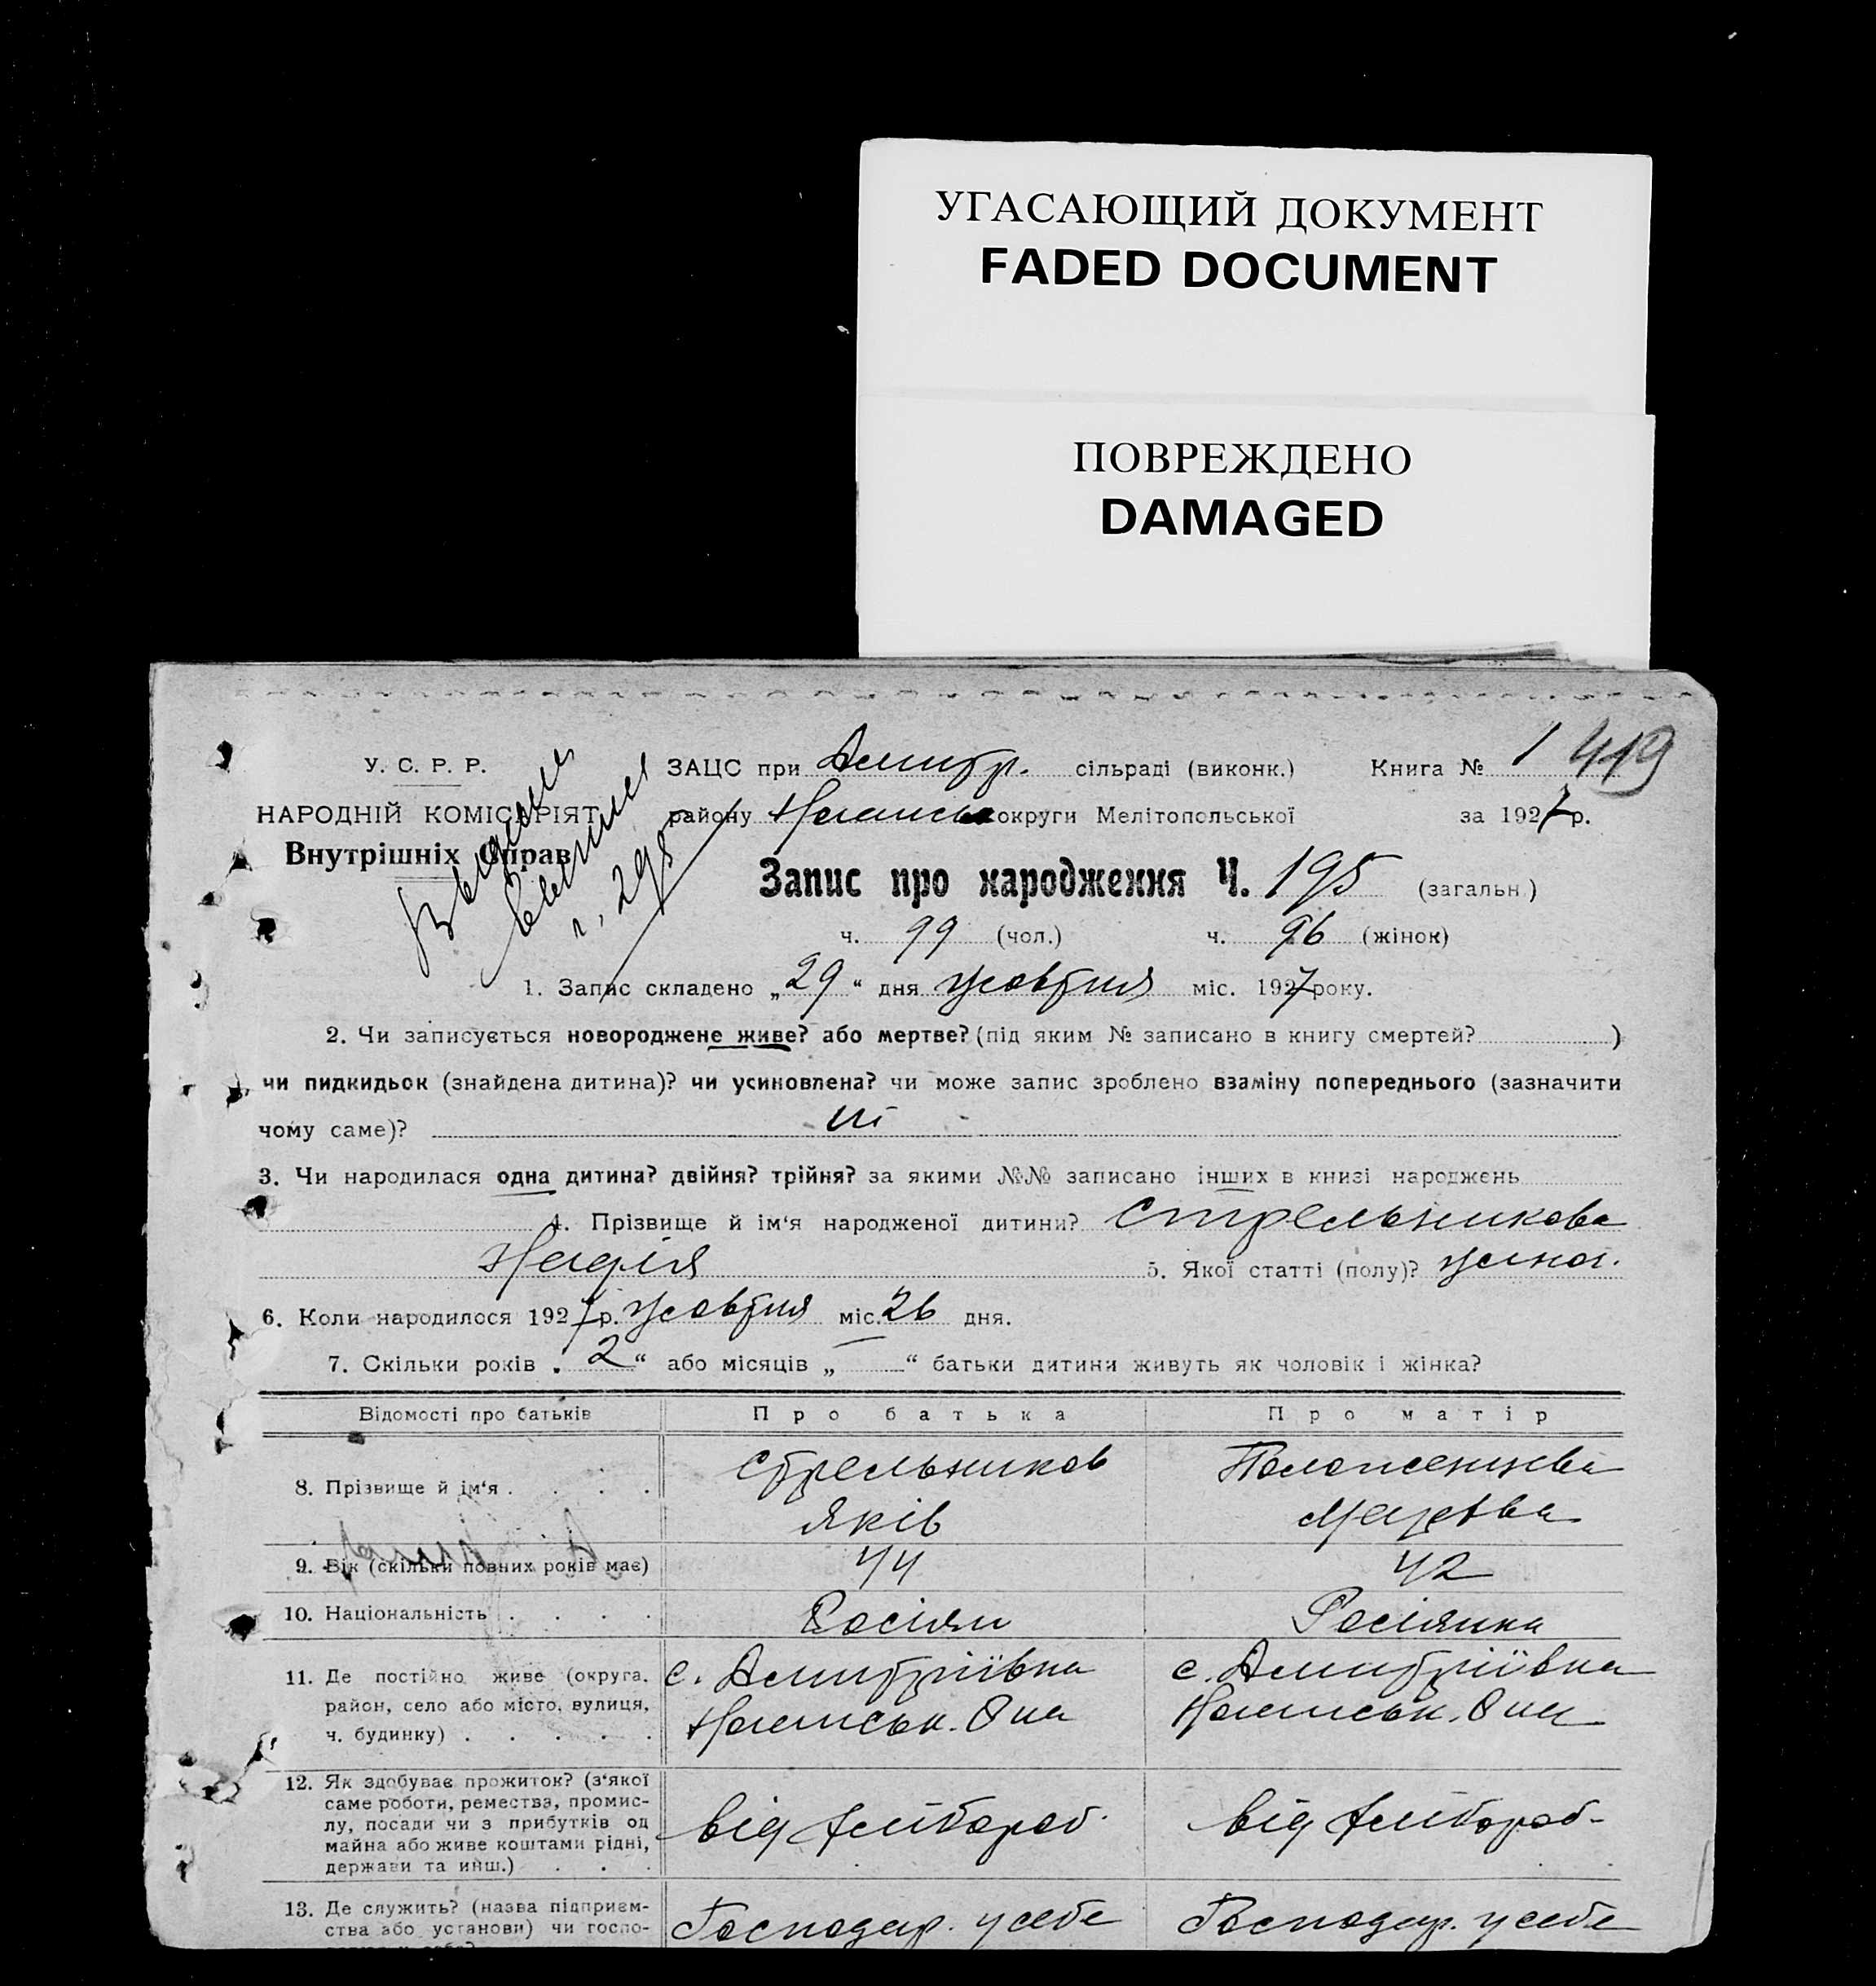 УГАСАЮЩИЙ ДОКУМЕНТ
FADED DOCUMENT
ПОВРЕЖДЕНО
DAMAGED
У. С. Р. Р.
НАРОДНІЙ КОМІСАРІЯТ
Внутрішніх Справ
ч. 295
ЗАЦС при Дмитр. сільраді (виконк.) Книга № 1 419
району округи Мелітопольської за 1927 р.
Запис про народження Ч. 195 (загальн.)
ч. 99 (чол.) ч. 96 (жінок)
1. Запис складено „29“ дня жовтня міс. 1927 року.
2. Чи записується новороджене живе? або мертве? (під яким № записано в книгу смертей? )
чи пидкидьок (знайдена дитина)? чи усиновлена? чи може запис зроблено взаміну попереднього (зазначити
чому саме)? ні
3. Чи народилася одна дитина? двійня? трійня? за якими №№ записано інших в книзі народжень
4. Прізвище й ім‘я народженої дитини? Стрельникова
Надія 5. Якої статті (полу)? жіноч.
6. Коли народилося 1927 р. жовтня міс. 26 дня.
7. Скільки років „2“ або місяців „—“ батьки дитини живуть як чоловік і жінка?
Відомості про батьків Про батька Про матір
8. Прізвище й ім‘я . . . . Стрельников Положенцева
Яків Марфа
9. Вік (скільки повних років має) 44 42
10. Національність . . . . Росіян Росіянка
11. Де постійно живе (округа, район, село або місто, вулиця, ч. будинку) . . . . . с. Дмитріївка с. Дмитріївка
12. Як здобуває прожиток? (з‘якої саме роботи, ремества, промислу, посади чи з прибутків од майна або живе коштами рідні, держави та инш.) . . . від хліборob. від хлібороб.
13. Де служить? (назва підприємства або установи) чи госпо- Господар. у себе Господар. у себе